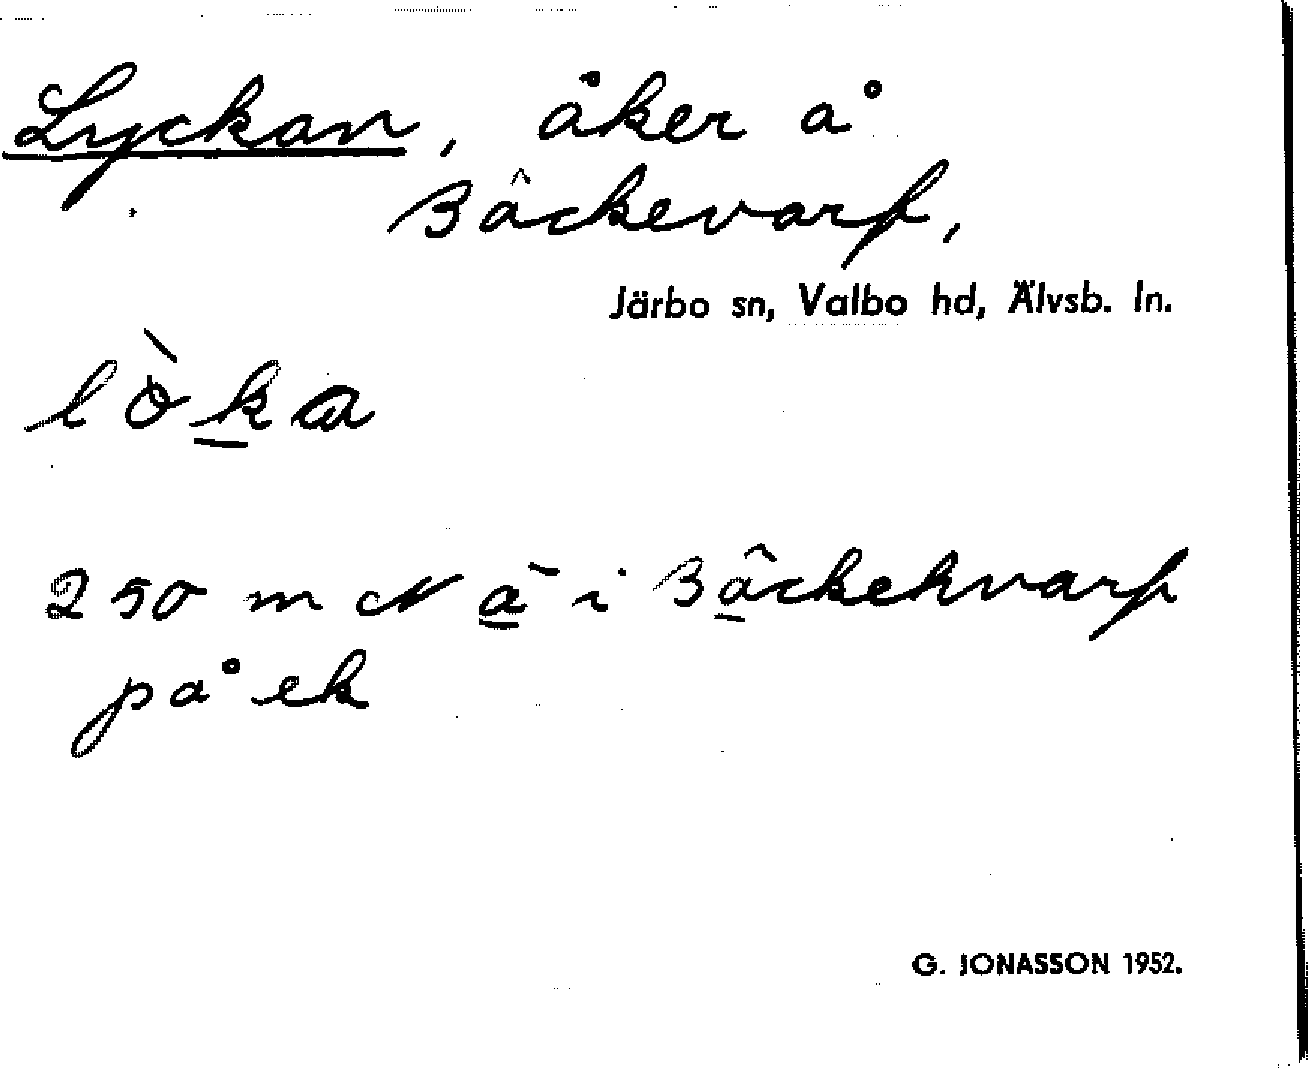 Lyckan, åker å
Bäckevarf,
Järbo sn, Valbo hd, Älvsb. ln.
lò̀ka
250 m N ä i Bäckehvarf
på ek
G. JONASSON 1952.